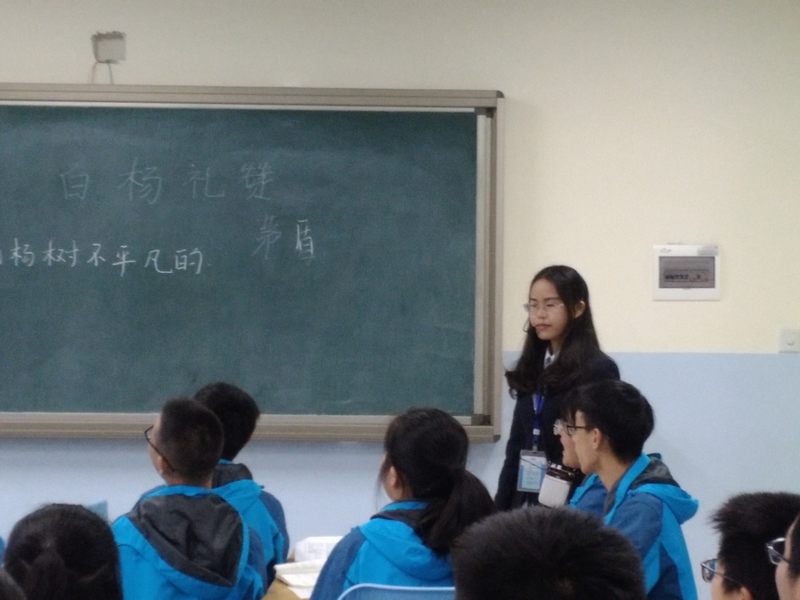 白杨礼赞
茅盾
杨树不平凡的